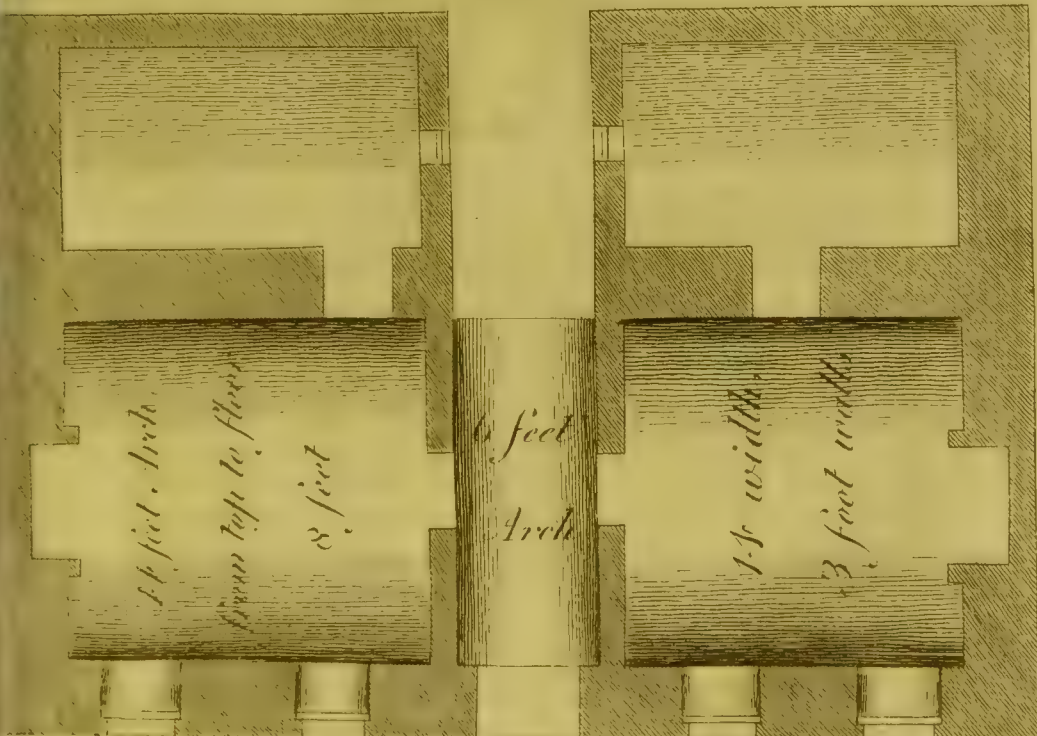 14 feet. Arch.
from top to floor
8 feet
6 feet
Arch
14 width,
3 feet walls,